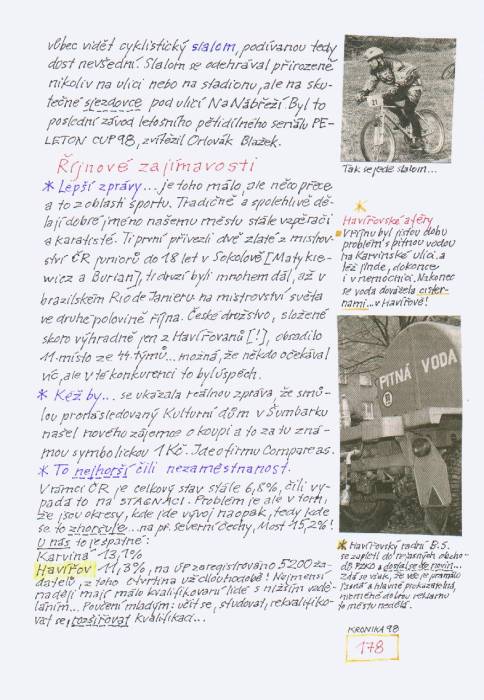 vůbec vidět cyklistický slalom, podívanou tedy
dost nevšední. Slalom se odehrával přirozeně
nikoliv na ulici nebo na stadionu, ale na sku-
tečné sjezdovce pod ulicí Na Nábřeží. Byl to
poslední závod letošního pětidílného seriálu PE-
LETON CUP 98, zvítězil Orlovák Blažek.
Říjnové zajímavosti
* Lepší zprávy... je toho málo, ale něco přece
a to z oblasti sportu. Tradičně a spolehlivě dě-
lají dobré jméno našemu městu stále vzpěrači
a karatisté. Ti první přivezli dvě zlaté z mistrov-
ství ČR juniorů do 18 let v Sokolově [Matykie-
wicz a Burian], ti druzí byli mnohem dál, až v
brazilském Rio de Janieru na mistrovství světa
ve druhé polovině října. České družstvo, složené
skoro výhradně jen z Havířovanů [!], obsadilo
11. místo ze 44 týmů... možná, že někdo očekával
víc, ale v té konkurenci to byl úspěch.
* Kéž by... se ukázala reálnou zpráva, že smů-
lou pronásledovaný Kulturní dům v Šumbarku
našel nového zájemce o koupi a to za tu zná-
mou symbolickou 1 Kč. Jde o firmu Compare as.
* To nejhorší čili nezaměstnanost.
V rámci ČR je celkový stav stále 6,8%, čili vy-
padá to na STAGNACI. Problém je ale v tom,
že jsou okresy, kde jde vývoj naopak, tedy kde
se to zhoršuje... na př. severní Čechy, Most 15,2%!
U nás to je špatné:
Karviná 13,1%
Havířov 11,3%, na ÚP zaregistrováno 5200 ža-
datelů, z toho čtvrtina už dlouhodobě! Nejmenší
naději mají málo kvalifikovaní lidé s nižším vzdě-
láním... Poučení mladým: učit se, studovat, rekvalifiko-
vat se, rozšiřovat kvalifikaci...
21
Tak se jede slalom...
*
Havířovské aféry
V říjnu byl jistou dobu
problém s pitnou vodou
na Karvinské ulici, a
též jinde, dokonce
i v nemocnici. Nakonec
se voda dovážela cister-
nami... v Havířově!
PITNÁ VODA
* Havířovský radní B.S.
se zapletl do nejasných obcho-
dů
to městu nedělá.
KRONIKA 98
178